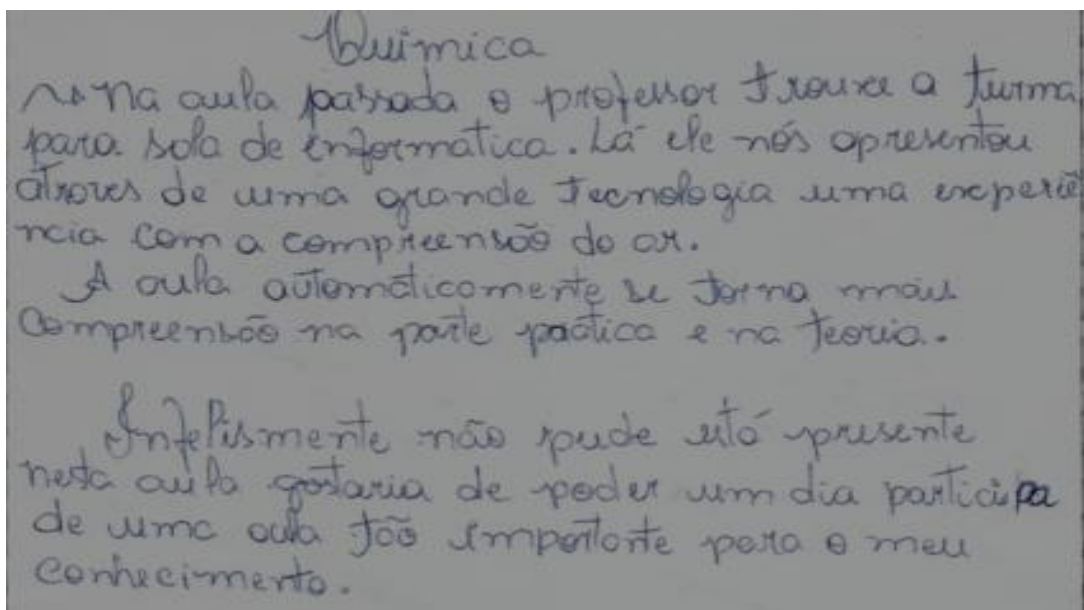 Quimica
Na aula passada o professor trouxe a turma
para sala de enformática. Lá ele nós apresentou
atraves de uma grande tecnologia uma experiê
ncia com a compreensão do ar.
A aula automáticamente se torna mais
Compreensão na parte pactica e na teoria.
Infelismente não pude está presente
nesta aula gostaria de poder um dia participa
de uma aula tão importante para o meu
conhecimento.